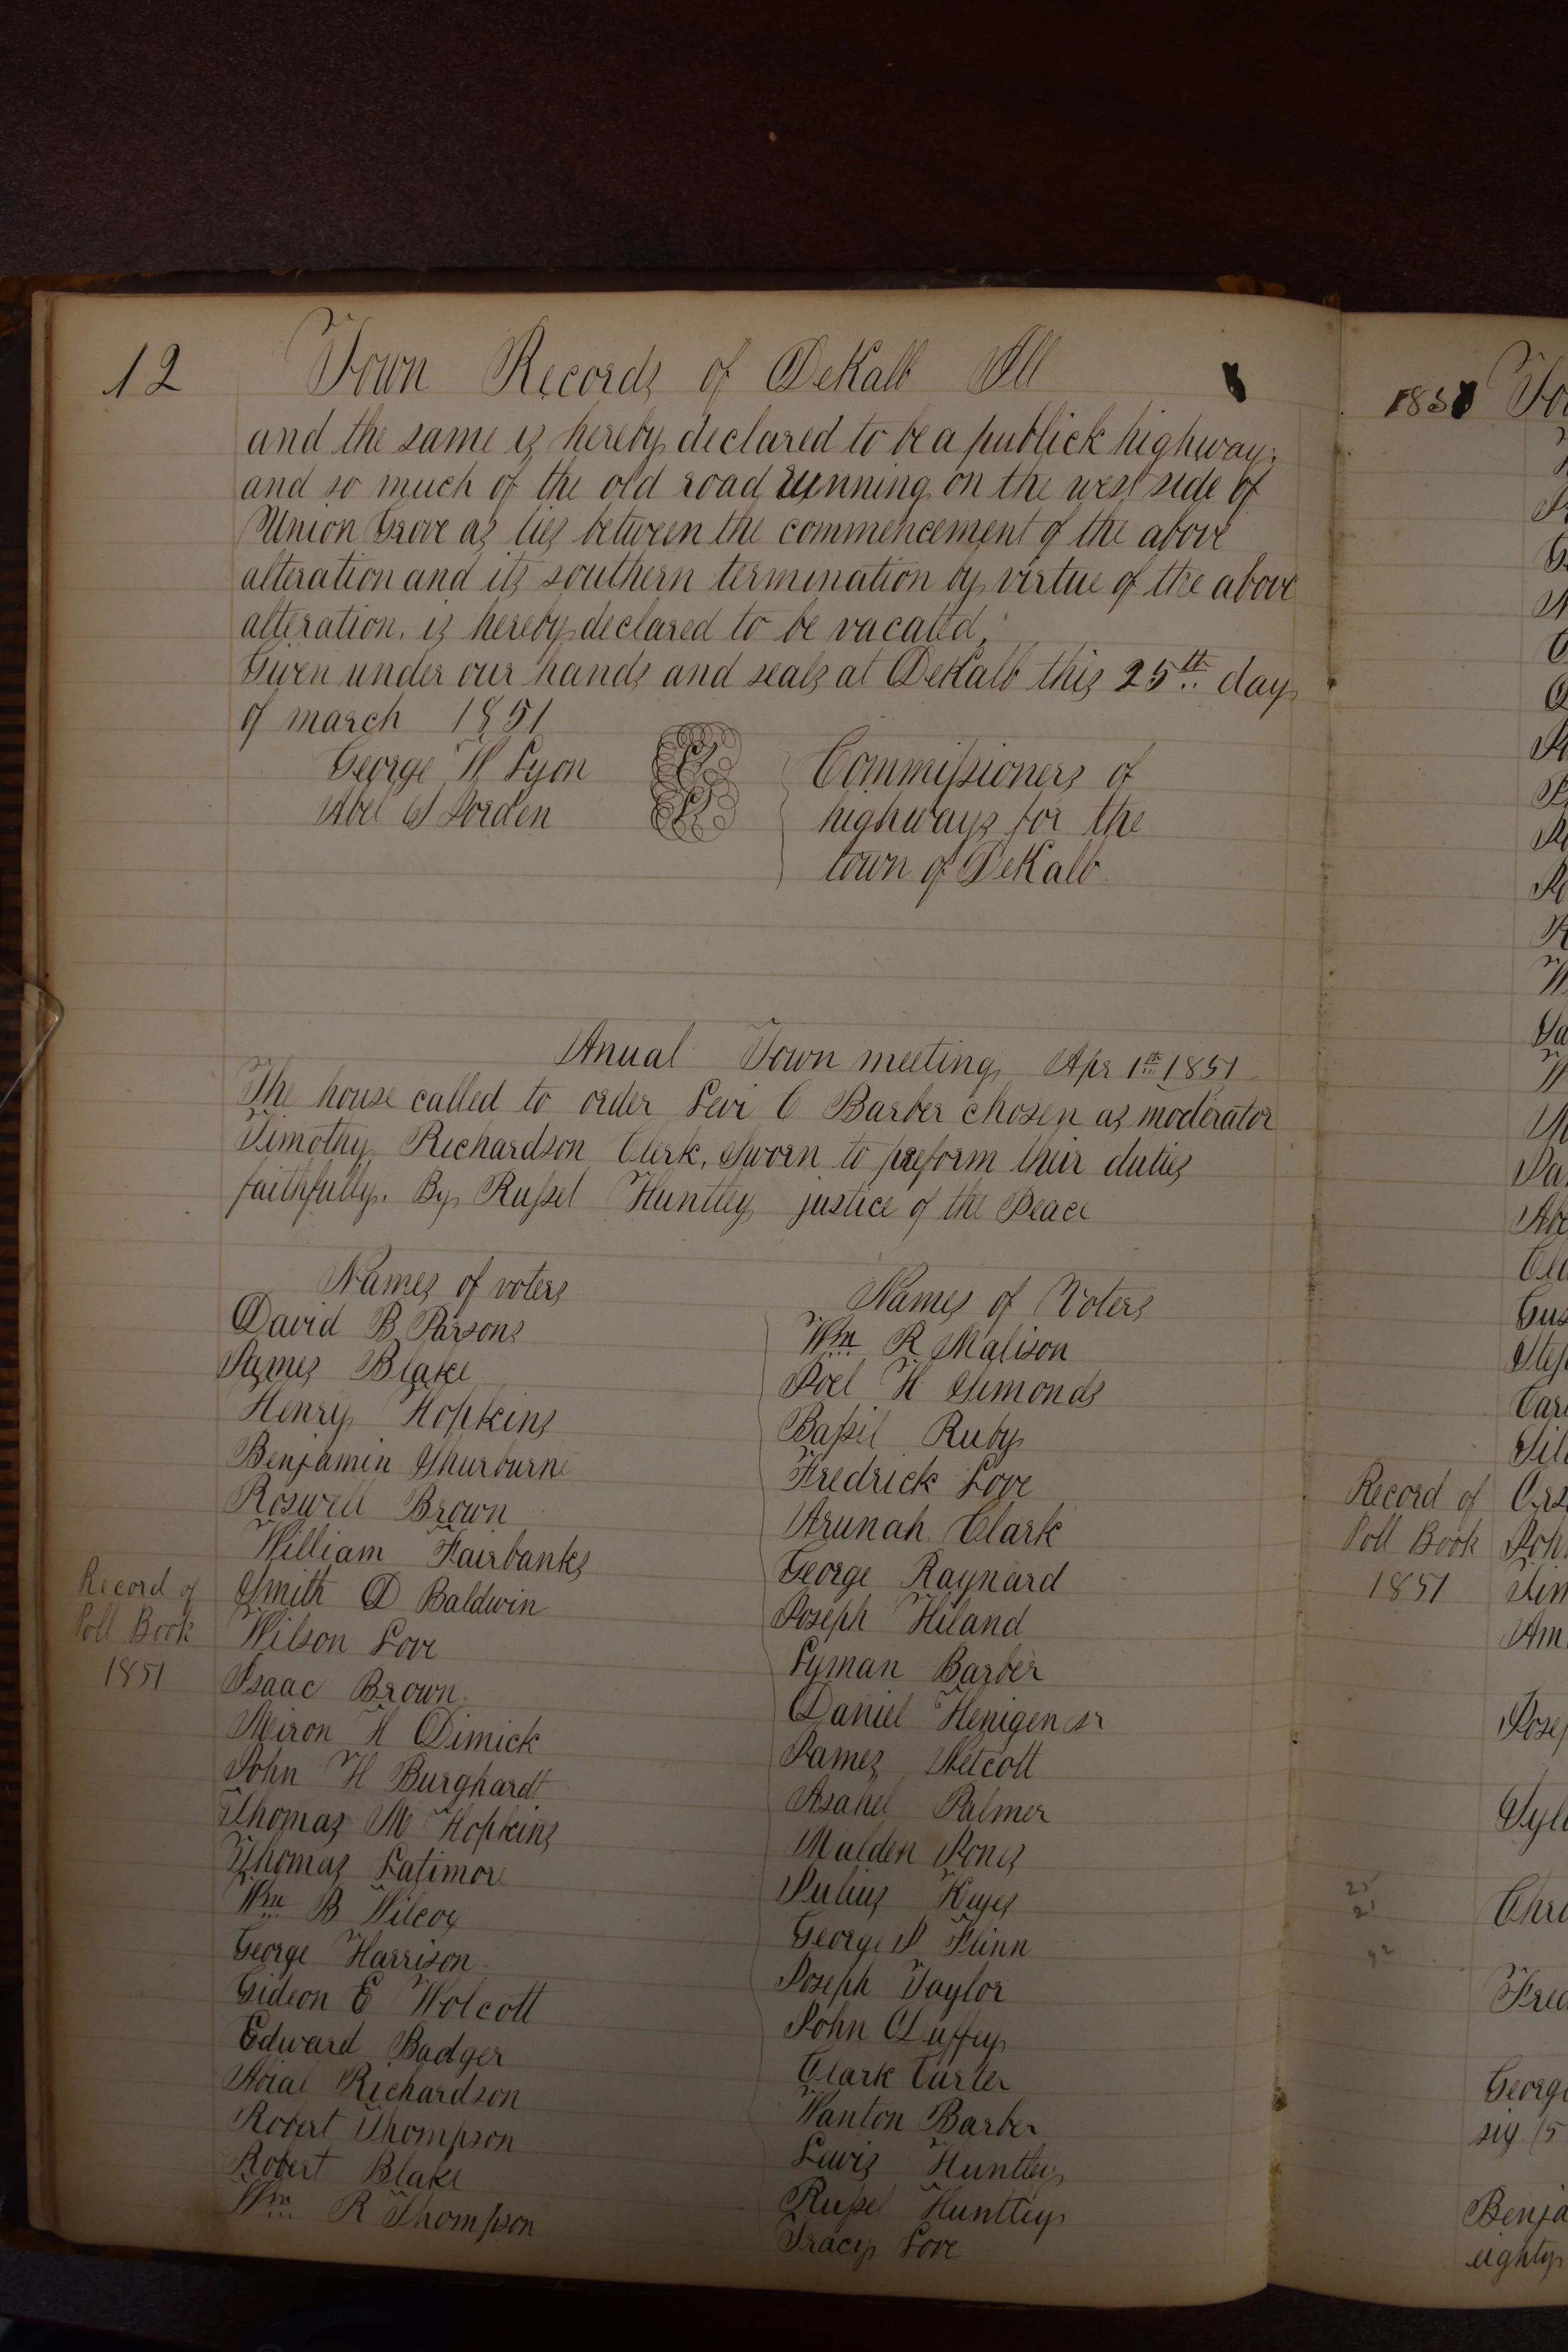 12 Town Records of DeKalb Ill
and the same is hereby declared to be a publick highway;
and so much of the old road running on the west side of
Union Grove as lies between the commencement of the above
alteration and its southern termination by virtue of the above
alteration. is hereby declared to be vacated,
Given under our hands and seals at DeKalb this 25th day
of march 1851
George H Lyon
Abel S Jorden
Commissioners of
highways for the
town of DeKalb
Anual Town meeting Apr 1th 1851
The house called to order Levi C Barber chosen as moderator
Timothy Richardson Clerk, Sworn to preform their duties
faithfully. By Russel Huntley justice of the Peace
Names of voters
David B Parsons
James Blake
Henry Hopkins
Benjamin Shurburne
Roswell Brown
William Fairbanks
Smith D Baldwin
Wilson Love
Isaac Brown
Miron H Dimick
John H Burghardt
Thomas M Hopkins
Thomas Latimore
Wm B Wilcox
George Harrison
Gideon E Wolcott
Edward Badger
Abial Richardson
Robert Thompson
Robert Blake
Wm R Thompson
Record of
Poll Book
1851
Names of Voters
Wm R Malison
Joel H Simonds
Bassil Ruby
Fredrick Love
Arunah Clark
George Raynard
Joseph Hiland
Lyman Barber
Daniel Henigen sr
James Wetcott
Asahel Palmer
Malden Jones
Julius Keyes
George J Flinn
Joseph Taylor
John Duffey
Clark Carter
Wanton Barber
Lewis Huntley
Russel Huntley
Tracy Love
Record of
Poll Book
1851